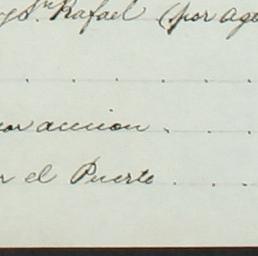 y Sn. Rafael (por age
. . . . .
por accion . . .
r el Puerto . . .